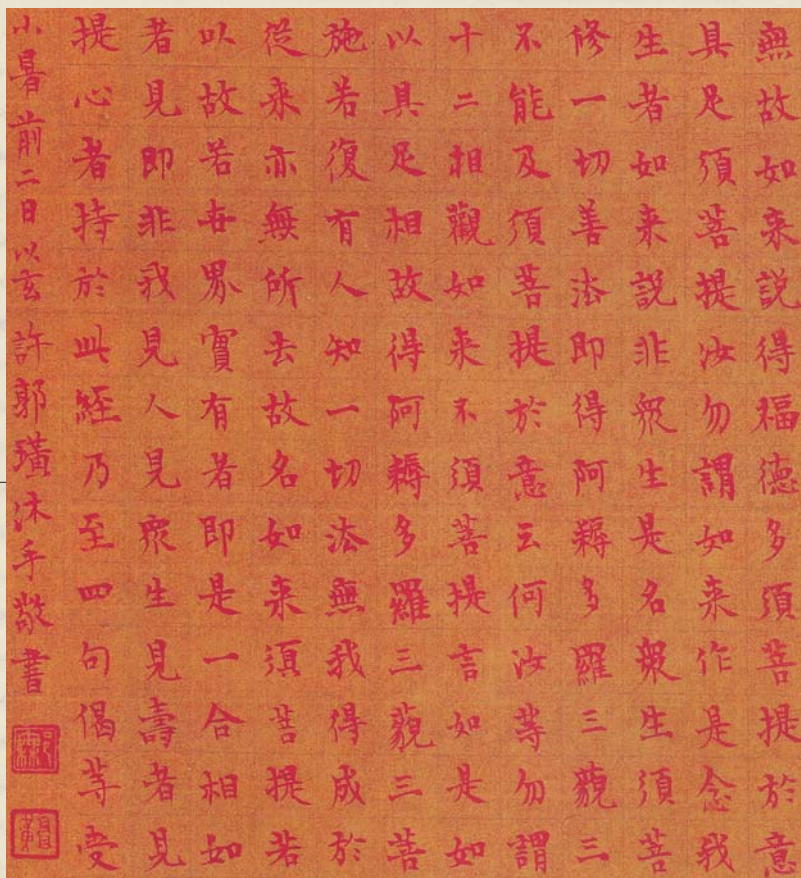 無故如来説得福德多須菩提於意
具足須菩提汝勿謂如来作是念我
生者如来説非衆生是名衆生須菩
修一切善法即得阿耨多羅三藐三
不能及須菩提於意云何汝等勿謂
十二相觀如来不須菩提言如是如
以具足相故得阿耨多羅三藐三菩
施若復有人知一切法無我得成於
從来亦無所去故名如来須菩提若
以故若世界實有者即是一合相如
者見即非我見人見衆生見壽者見
提心者持於此經乃至四句偈等受
小暑前二日以玄許郭璜沐手敬書